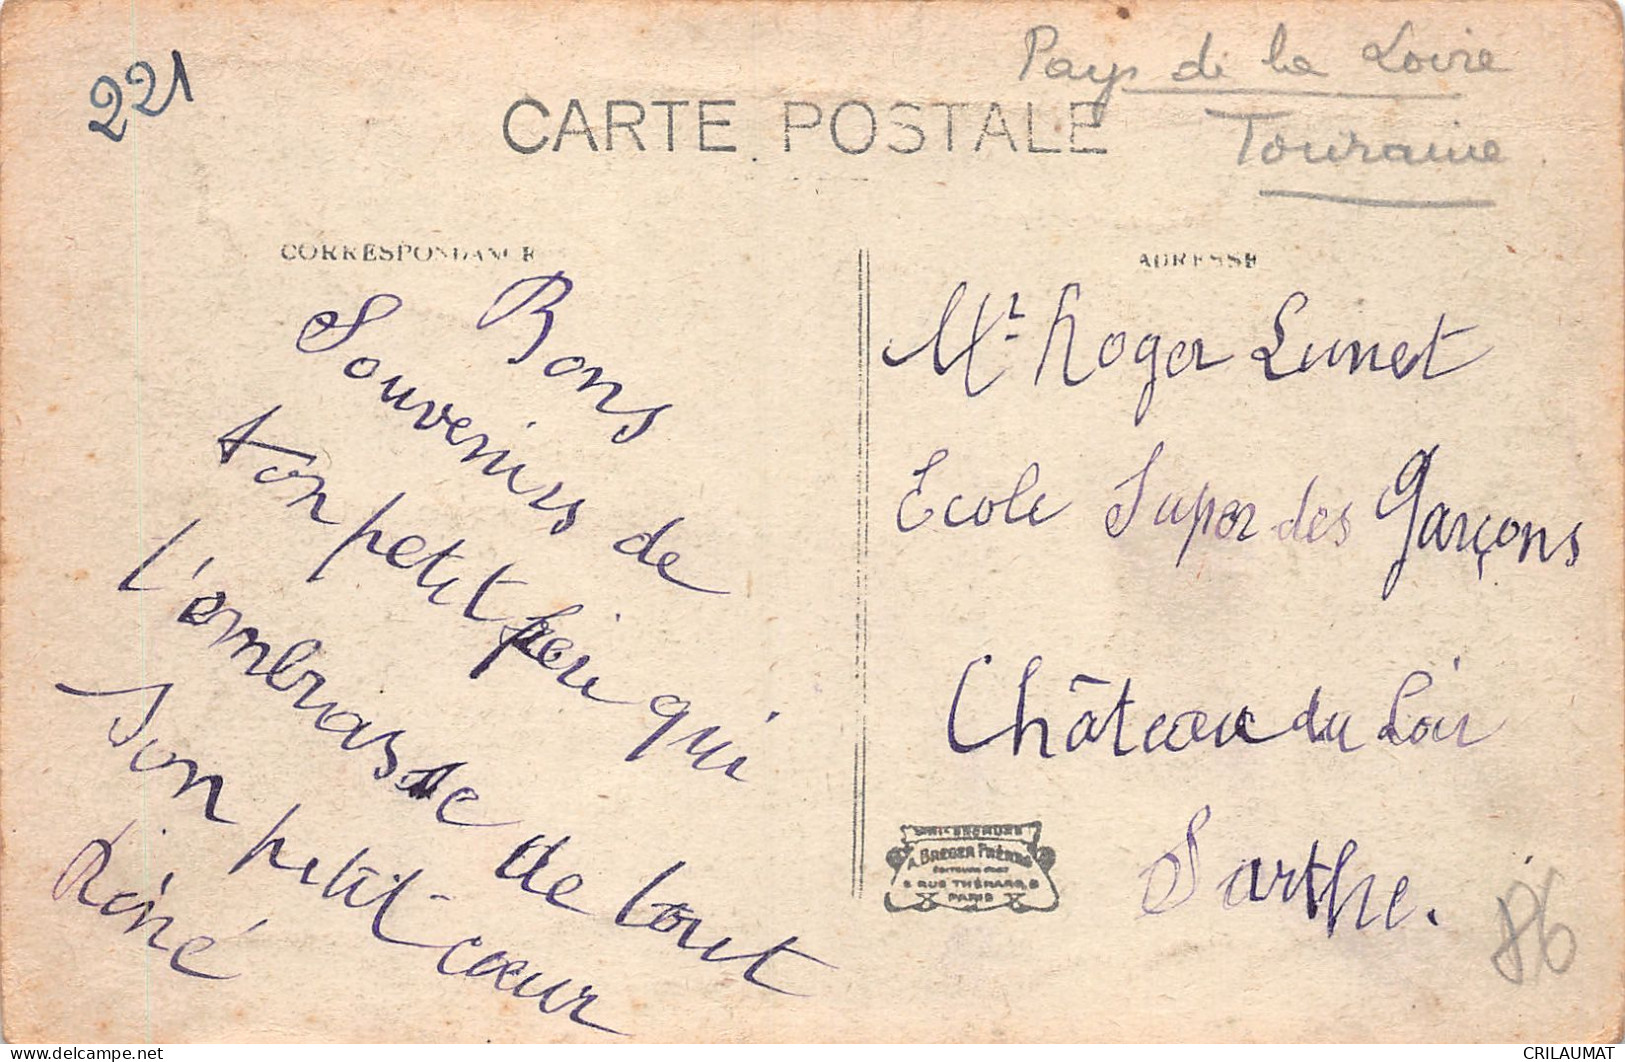 221
Pays de la Loire
Touraine
CARTE POSTALE
CORRESPONDANCE
Bons
Souvenirs de
ton petit frère qui
l'embrasse de tout
son petit cœur
Réné
ADRESSE
Mr Roger Lunet
Ecole Super des Garçons
Château du Loir
Sarthe.
A. BREGER FRÈRES
9 RUE THÉNARD, 9
PARIS
86
CRILAUMAT